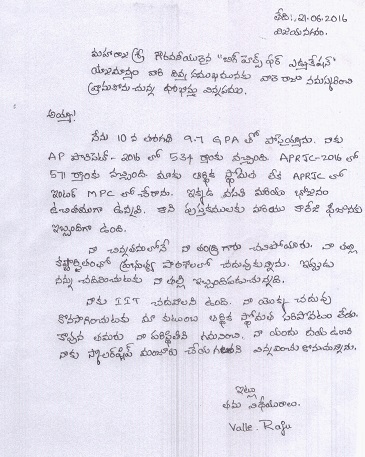 తేది:, 21-06-2016
విజయనగరం.
మహారాజ శ్రీ గౌరవనీయులైన "బిగ్ హెల్ప్ ఫర్ ఎడ్యుకేషన్"
యాజమాన్యం వారి దివ్య సముఖమునకు వాలె రాజు నమస్కరించి
వ్రాసుకొను చున్న
అయ్యా!
నేను 10 వ తరగతి 9.7 GPA తో పాసైయ్యాను. నాకు
AP పాలిసెట్ - 2016 లో 534 ర్యాంకు వచ్చింది. APRJC-2016 లో
571 ర్యాంకు వచ్చింది. మాకు ఆర్థిక స్థోమత లేక APRJC లో
ఇంటర్ MPC లో చేరాను. ఇక్కడ వసతి మరియు భోజనం
ఉచితముగా ఉన్నవి. కాని పుస్తకములకు మరియు కాలేజి ఫీజులకు
ఇబ్బందిగా ఉంది.
నా చిన్నతనంలోనే నా తండ్రి గారు చనిపోయారు. నా తల్లి
కష్టార్జితంతో ప్రభుత్వ పాఠశాలలో చదువుకున్నాను. ఇప్పుడు
నన్ను చదివించుటకు నా తల్లి ఇబ్బందిపడుచున్నది.
నాకు IIT చదవాలని ఉంది. నా యొక్క చదువు
కొనసాగించుటకు మా కుటుంబ ఆర్థిక స్థోమత సరిపోవటం లేదు.
కావున తమరు నా పరిస్థితిని గమనించి. నా యందు దయ ఉంచి
నాకు స్కాలర్‌షిప్ మంజూరు చేయ గలరని విన్నవించు కొనుచున్నాను.
ఇట్లు
తమ విధేయురాలు.
Valle. Raju